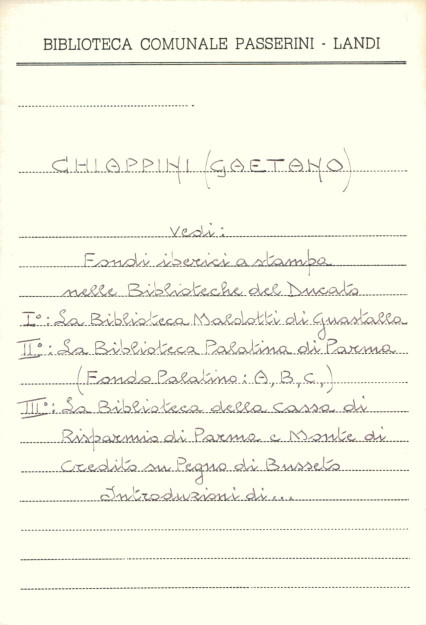 BIBLIOTECA COMUNALE PASSERINI - LANDI
CHIAPPINI (GAETANO)
Vedi:
Fondi iberici a stampa
nelle Biblioteche del Ducato
I°: La Biblioteca Maldotti di Guastalla
II°: La Biblioteca Palatina di Parma
(Fondo Palatino: A, B, C,)
III°: La Biblioteca della Cassa di
Risparmio di Parma e Monte di
Credito su Pegno di Busseto
Introduzioni di...